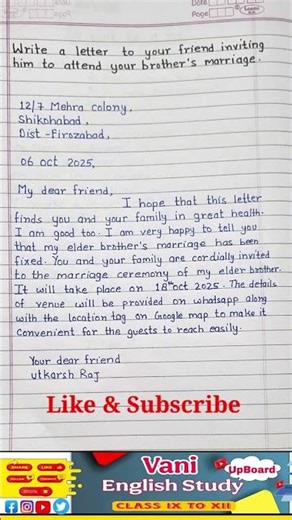 Date
Page
Write a letter to your friend inviting
him to attend your brother's marriage.
12/7 Mehra colony,
Shikohabad,
Dist -Firozabad,
06 oct 2025,
My dear friend,
I hope that this letter
finds you and your family in great health.
I am good too. I am very happy to tell you
that my elder brother's marriage has been
fixed. You and your family are cordially invited
to the marriage ceremony of my elder brother.
It will take place on 18th oct 2025. The details
of venue will be provided on whatsapp along
with the location tag on Google map to make it
Convenient for the guests to reach easily.
Your dear friend
utkarsh Raj
Like & Subscribe
Vani
English Study
CLASS IX TO XII
UpBoard